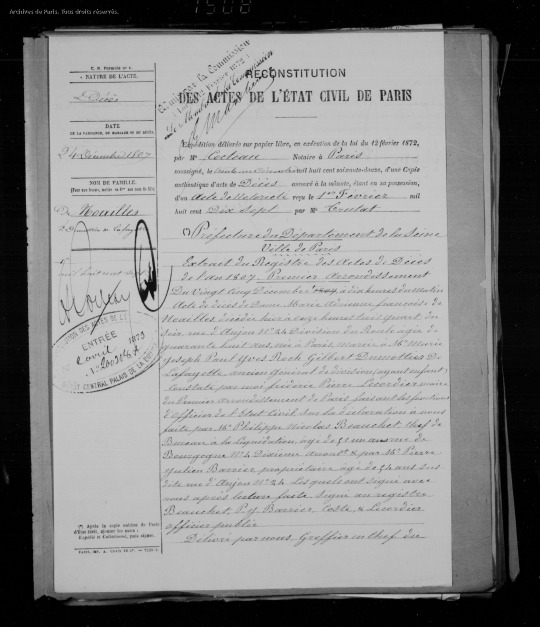 Archives de Paris. Tous droits réservés.
1508
C. N. Formule n° 1.
NATURE DE L'ACTE.
Décès
DATE
24 Décembre 1807
NOM DE FAMILLE.
De Noailles
Admise par la Commission
RECONSTITUTION
DES ACTES DE L'ÉTAT CIVIL DE PARIS
Expédition délivrée sur papier libre, en exécution de la loi du 12 février 1872,
par Me Notaire à Paris
soussigné, le mil huit cent soixante-douze, d'une Copie
authentique d'acte de Décès annexé à la minute, étant en sa possession,
d'un Acte de Notoriété reçu le 1er Février mil
huit cent Dix Sept par Me
Préfecture du Département de la Seine
Ville de Paris
Extrait du Registre des Actes de Décès
de l'an 1807. Premier Arrondissement
Du Vingt Cinq Décembre à dix heures du Matin
Acte de décès de Dame Marie Adrienne françoise de
Noailles décédée hier à onze heures trois quart du
Soir, rue d'Anjou No 24 Division du Roule agée de
quarante huit ans, née à Paris, mariée à Mr Marie
Joseph Paul Yves Roch Gilbert Dumottier De
Lafayette ancien Général de division, ayant enfant
Constaté par moi fréderic Pierre Lecordier maire
du Premier Arrondissement de Paris faisant les fonctions
d'Officier de l'Etat Civil sur la déclaration à nous
faite par Mr Philippe Nicolas Beauchet chef de
Bureau à la Liquidation, agé de ans rue de
Bourgogne No 4 Dixième Arrondt & par Mr Pierre
Julien Barrier propriétaire agé de 54 ans sus
dite rue d'Anjou No 24 Lesquels ont signé avec
nous après lecture faite Signé au registre
Beauchet, P. J. Barrier, Coste, & Lecordier
officier public
Délivré par nous, Greffier en Chef du
ENTRÉE
avril 1873
DÉPÔT CENTRAL PALAIS DE LA
(*) Après la copie entière de l'acte
d'Etat civil, ajouter les mots :
Expédié et Collationné, puis signer.